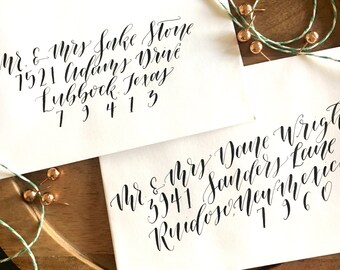 Mr. & Mrs Jake Stone
7521 Adams Drive
Lubbock, Texas
79413
Mr. & Mrs Dane Wright
3941 Sanders Lane
Ruidoso, New Mexico
7360